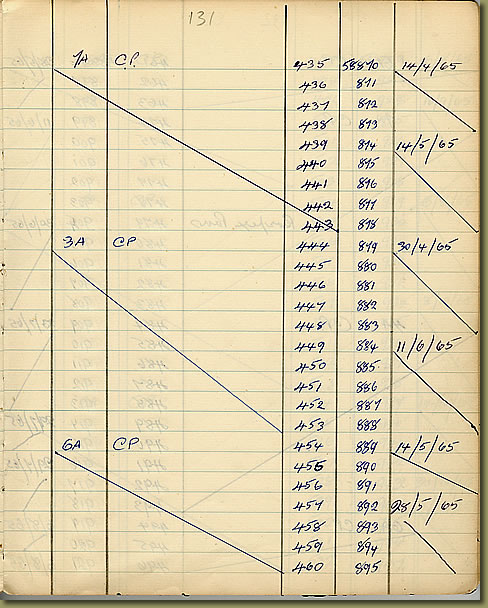 131
7A C.P. 435 58870 14/4/65
436 871
437 872
438 873
439 874 14/5/65
440 875
441 876
442 877
443 878
3A CP 444 879 30/4/65
445 880
446 881
447 882
448 883
449 884 11/6/65
450 885
451 886
452 887
453 888
6A CP 454 889 14/5/65
455 890
456 891
457 892 28/5/65
458 893
459 894
460 895